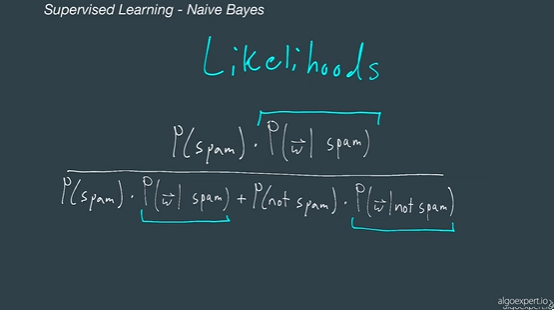 Supervised Learning - Naive Bayes
Likelihoods
P(spam) · P(w⃗ | spam)
P(spam) · P(w⃗ | spam) + P(not spam) · P(w⃗ | not spam)
algoexpert.io